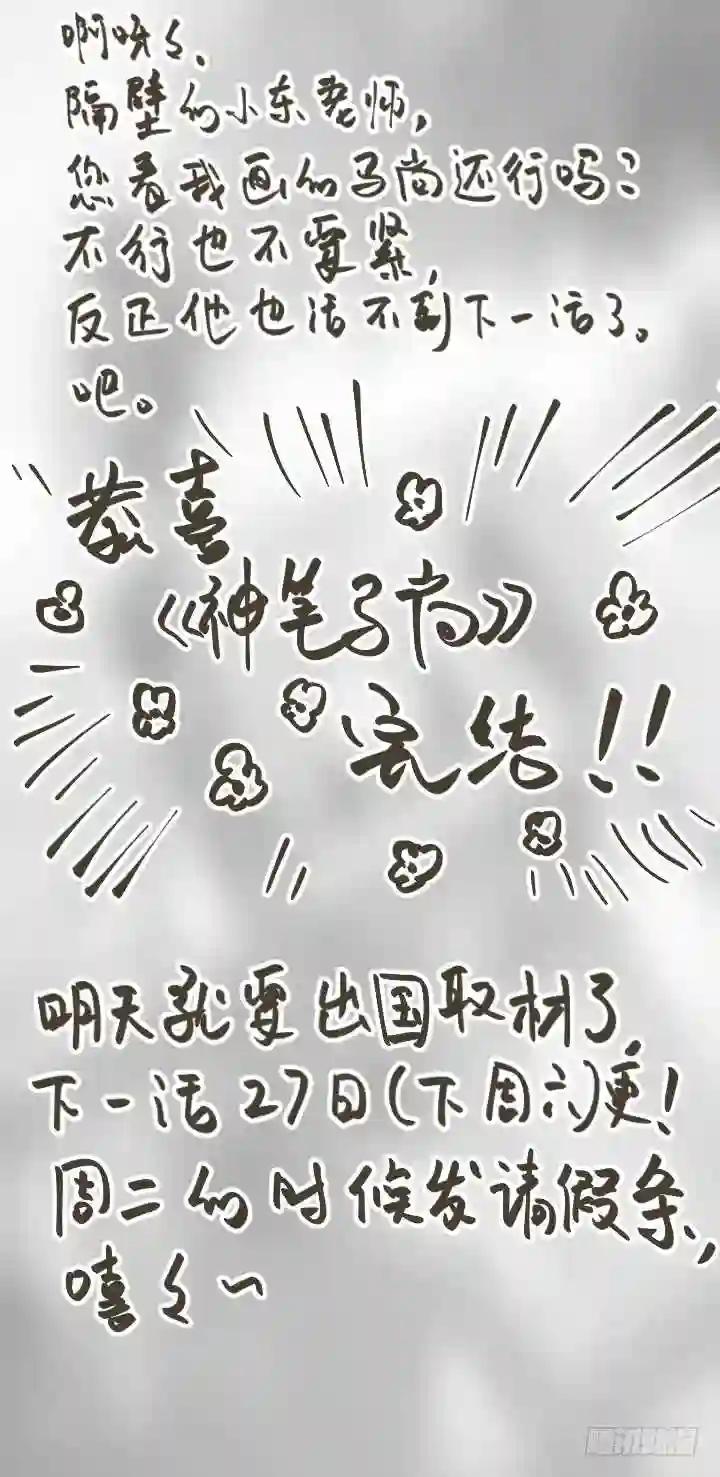 啊呀々、
隔壁的小东老师,
您看我画的马尚还行吗?
不行也不要紧,
反正他也活不到下一话了。
吧。
恭喜
《神笔马尚》
完结!!
明天就要出国取材了,
下一话27日(下周六)更!
周二的时候发请假条,
嘻々~